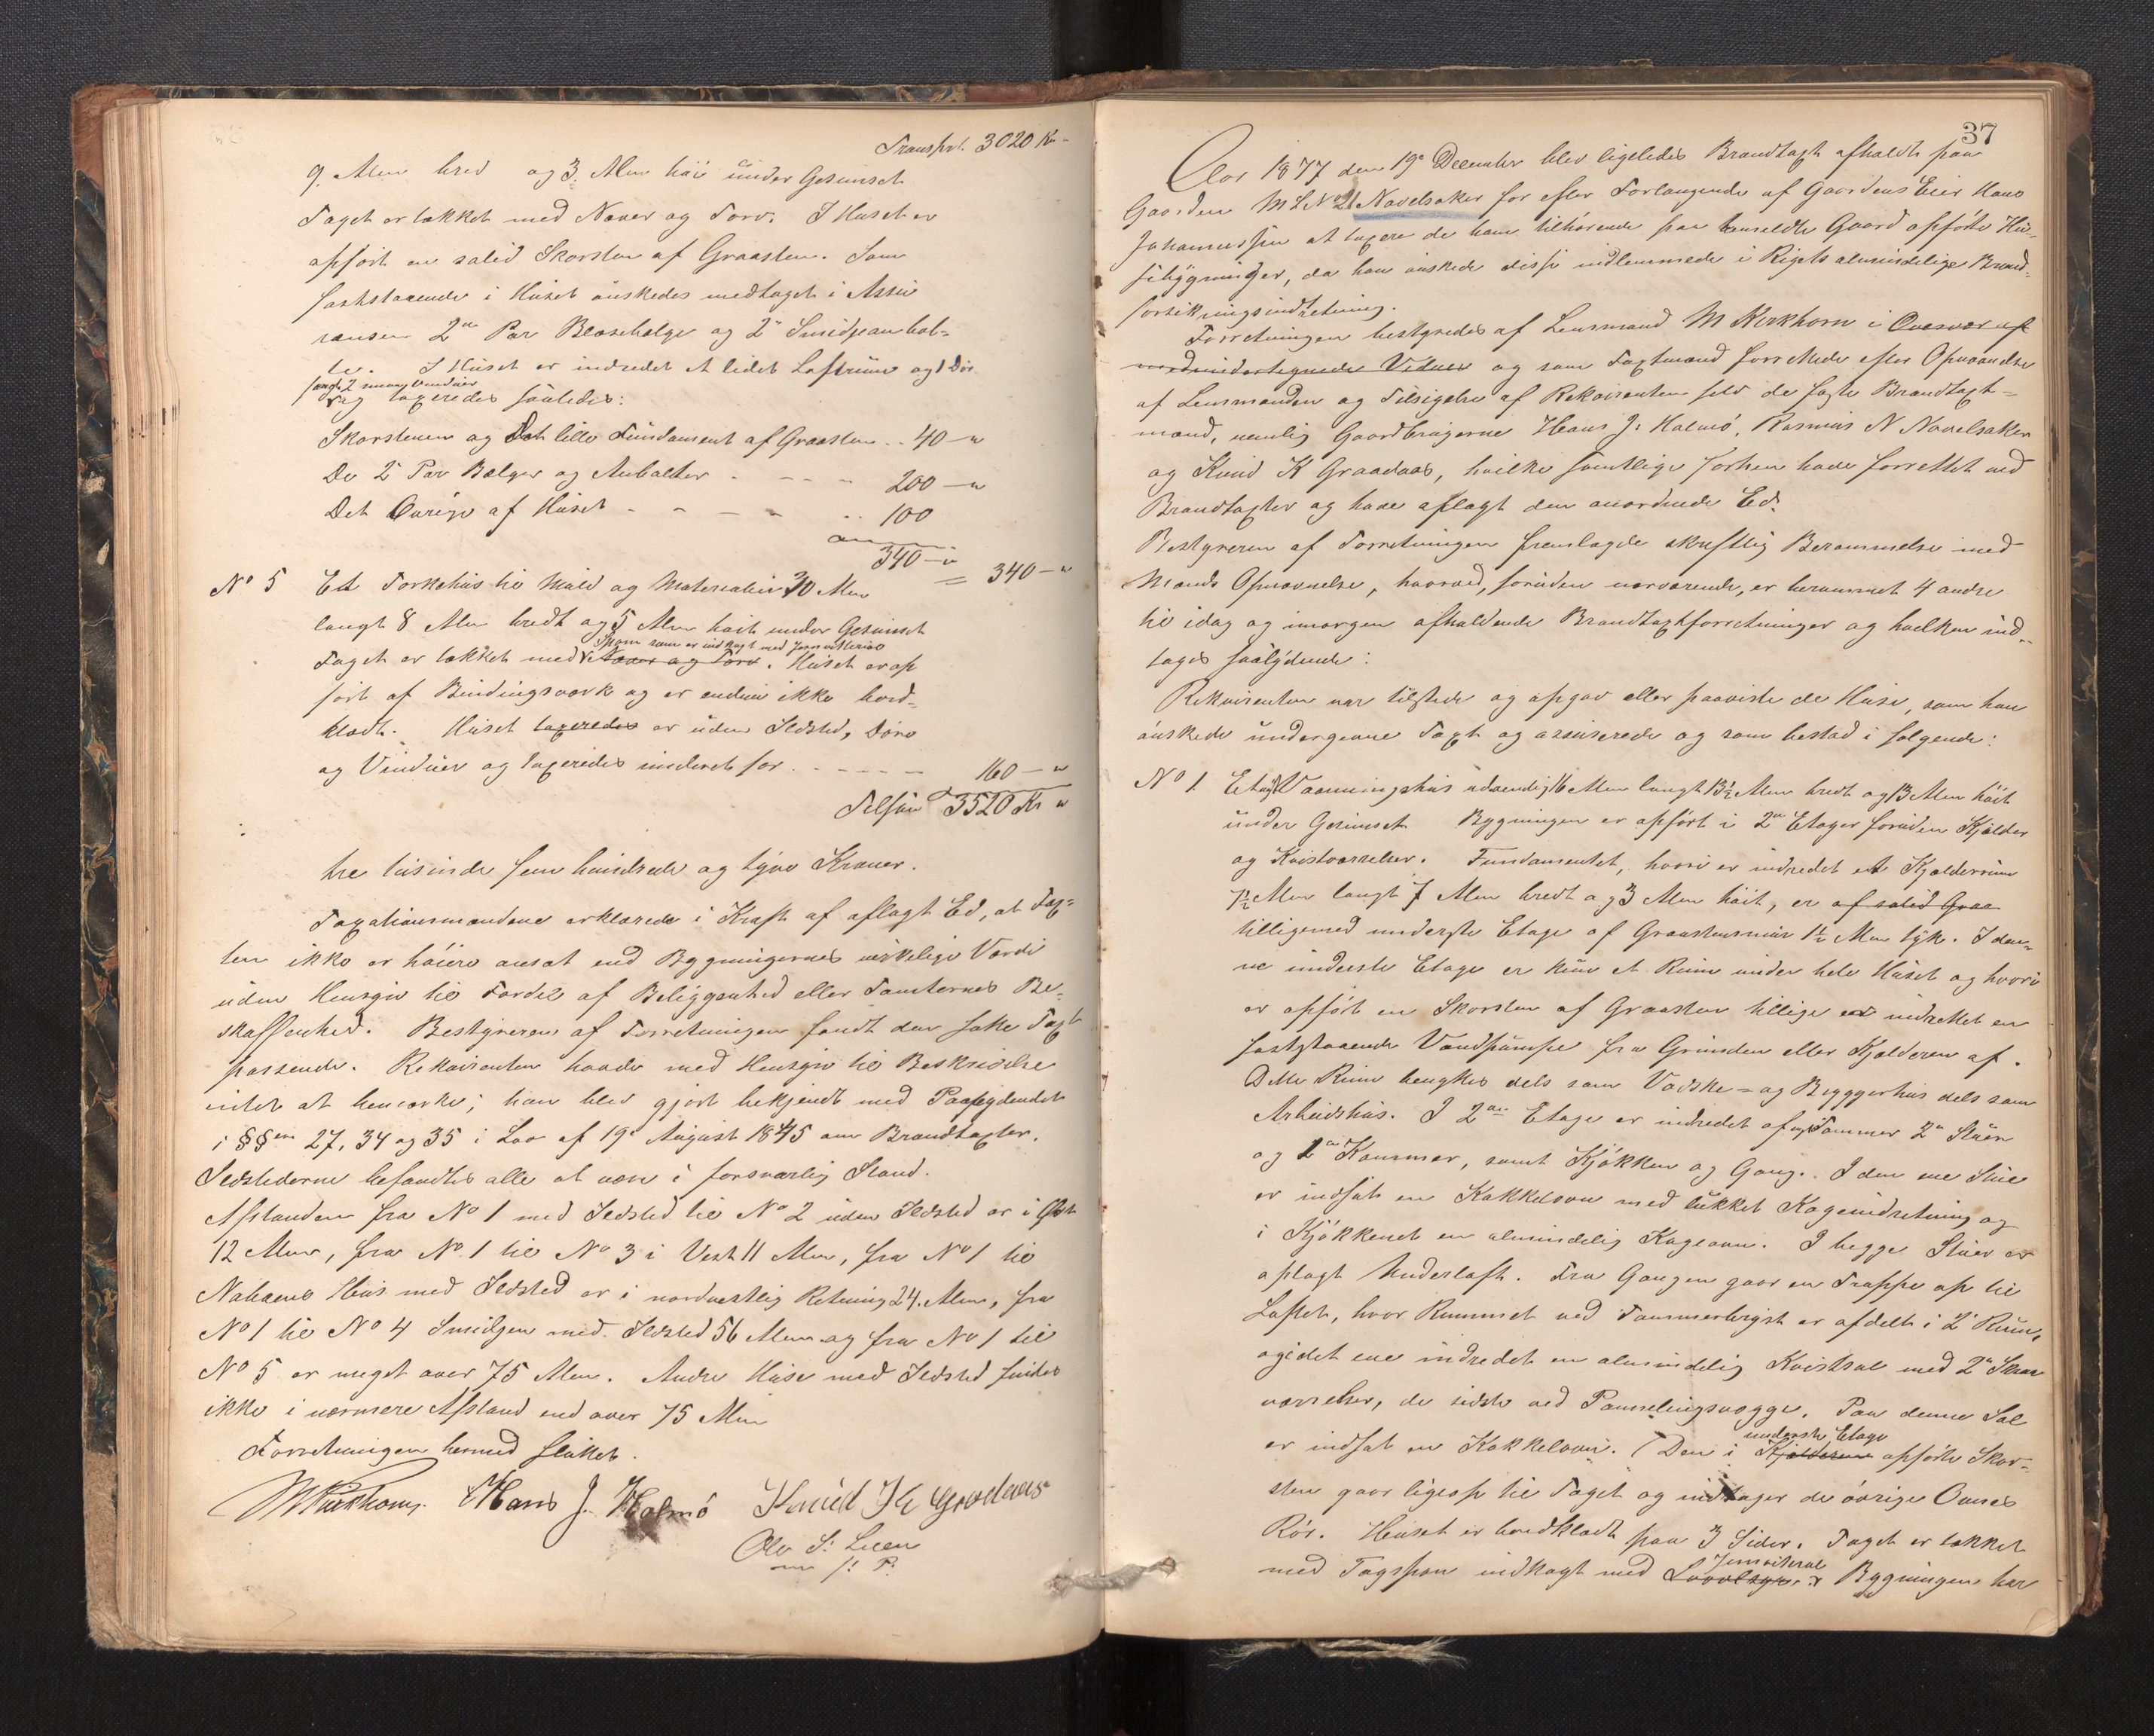 Transpt. 3020 Kr -
9. Alen bred og 3 Alen høi under Gesimset
Taget er tækket med Næver og Torv. I Huset er
opført en solid Skorsten af Graasten. Som
faststaaende i Huset ønskedes medtaget i Assu
ransen 2de Par Blæsebælge og 2de Smidjeambol-
te. I Huset er indredet et lidet Loftrum og 1 Dør
samt 2 smaa Vinduer
og taxeredes saaledes:
Skorstenen og det lille Fundament af Graasten .. 40 - "
De 2de Par Bælger og Ambolter - - - - 200 - "
Det Øvrige af Huset - - - - .. 100
340 - "
= 340 - "
No 5 Et Tørkehus til Muld og Materialier 30 Alen
langt 8 Alen bredt og 5 Alen høit under Gesimset
Spon som er indkogt med Jernvitriol
Taget er tækket med Næver og Torv. Huset er op
ført af Bindingsværk og er endnu ikke bord-
klædt. Huset taxeredes er uden Ildsted, Døre
og Vinduer og taxeredes underet for - - - - - 160 - "
Tilsam 3520 Kr "
tre tusinde fem hundrede og tyve Kroner.
Taxationsmændene erklærede i Kraft af aflagt Ed, at Tax-
ten ikke er høiere ansat end Bygningernes virkelige Værdi
uden Hensyn til Fordel af Beliggenhed eller Tomternes Be-
skaffenhed. Bestyreren af Forretningen fandt den satte Taxt
passende. Rekvirenten havde med Hensyn til Beskrivelse
intet at bemærke; han blev gjort bekjendt med Paabydendet
i §§erne 27, 34 og 35 i Lov af 19de August 1845 om Brandtaxter.
Ildstederne befandtes alle at være i forsvarlig Stand.
Afstanden fra No 1 med Ildsted til No 2 uden Ildsted er i Øst
12 Alen, fra No 1 til No 3 i Vest 11 Alen, fra No 1 til
Naboens Hus med Ildsted er i nordvestlig Retning 24 Alen, fra
No 1 til No 4 Smidjen med Ildsted 56 Alen og fra No 1 til
No 5 er meget over 75 Alen. Andre Huse med Ildsted findes
ikke i nærmere Afstand end over 75 Alen
Forretningen hermed sluttet.
M Kirkhorn. Hans J. Holmø Knud K Graadaas
m f. P.
37
Aar 1877 den 19de December blev ligeledes Brandtaxt afholdt paa
Gaarden ML No 21 Navelsaker for efter Forlangende af Gaardens Eier Hans
Johannessen at taxere de ham tilhørende paa bemeldte Gaard opførte Hu-
sebygninger, da han ønskede disse indlemmede i Rigets almindelige Brand-
forsikringsindretning.
Forretningen bestyredes af Lensmand M Kirkhorn i Overvær af
medundertegnede Vidner og som Taxtmænd forrettede efter Opnævnelse
af Lensmanden og Tilsigelse af Rekvirenten selv de faste Brandtaxt-
mænd, nemlig Gaardbrugerne Hans J. Holmø, Rasmus N Navelsaker
og Knud K Graadaas, hvilke samtlige forhen have forrettet ved
Brandtaxter og have aflagt den anordnede Ed.
Bestyreren af Forretningen fremlagde skriftlig Berammelse med
Mænds Opnævnelse, hvorved, foruden nærværende, er berammet 4 andre
til idag og imorgen afholdende Brandtaxtforretninger og hvilken ind-
tages saalydende:
Rekvirenten var tilstede og opgav eller paaviste de Huse, som han
ønskede undergivne Taxt og assurerede og som bestod i følgende:
No 1. Et nyt Vaaningshus udvendig 16 Alen langt 13½ Alen bredt og 13 Alen høit
under Gesimset Bygningen er opført i 2de Etager foruden Kjelder
og Kvistværrelser. Fundamentet, hvori er indredet et Kjelderrum
7½ Alen langt 7 Alen bredt og 3 Alen høit, er af solid Graa
tilligemed underste Etage af Graastensmur 1½ Alen tyk. I den-
ne underste Etage er kun et Rum under hele Huset og hvori
er opført en Skorsten af Graasten tillige er indrettet en
faststaaende Vandpumpe fra Grunden eller Kjelderen af.
Dette Rum benyttes dels som Vadske- og Bryggerhus dels som
Arbeidshus. I 2den Etage er indredet af nyt Tømmer 2de Stuer
og 2de Kammer, samt Kjøkken og Gang. I den ene Stue
er indsat en Kakkelovn med lukket Kogeindretning og
i Kjøkkenet en almindelig Kogeovn. I begge Stuer er
oplagt Underloft. Fra Gangen gaar en Trappe op til
Loftet, hvor Rummet ved Tømmerbryst er afdelt i 2de Rum,
og i det ene indredet en almindelig Kvistsal med 2de Skraa
værrelser, de sidste ved Panelingsvægge. Paa denne Sal
underste Etage
er indsat en Kakkelovn. Den i Kjelderen opførte Skor-
sten gaar ligeop til Taget og indtager de øvrige Ovnes
Rør. Huset er bordklædt paa 3 Sider. Taget er tækket
Jernvitriol
med Tagspon indkogt med . Bygningen har